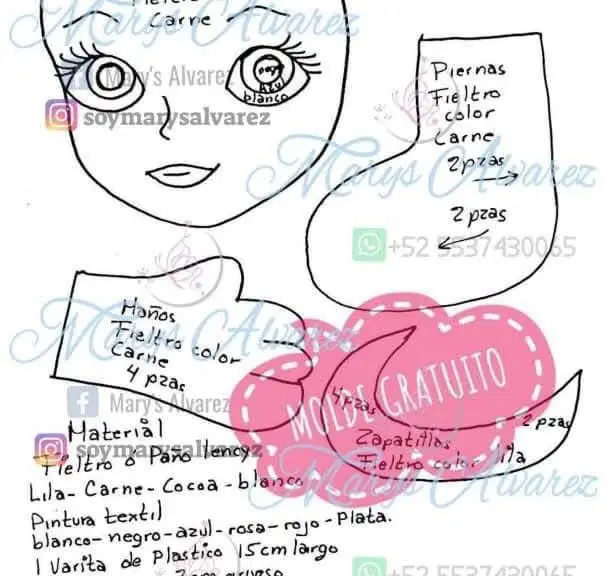 Carne
Marys Alvarez
Mary's Alvarez
soymarysalvarez
negro
Azul
blanco
Piernas
Fieltro
color
Carne
2 pzas
2 pzas
Marys Alvarez
+52 5537430065
Manos
Fieltro color
Carne
4 pzas
Marys Alvarez
MOLDE GRATUITO
4 pzas
2 pzas
Zapatillas
Fieltro color lila
Mary's Alvarez
soymarysalvarez
Marys Alvarez
Material
Fieltro ó Paño lency
Lila-Carne-Cocoa-blanco
Pintura textil
blanco-negro-azul-rosa-rojo-Plata.
1 Varita de Plastico 15cm largo
+52 5537430065